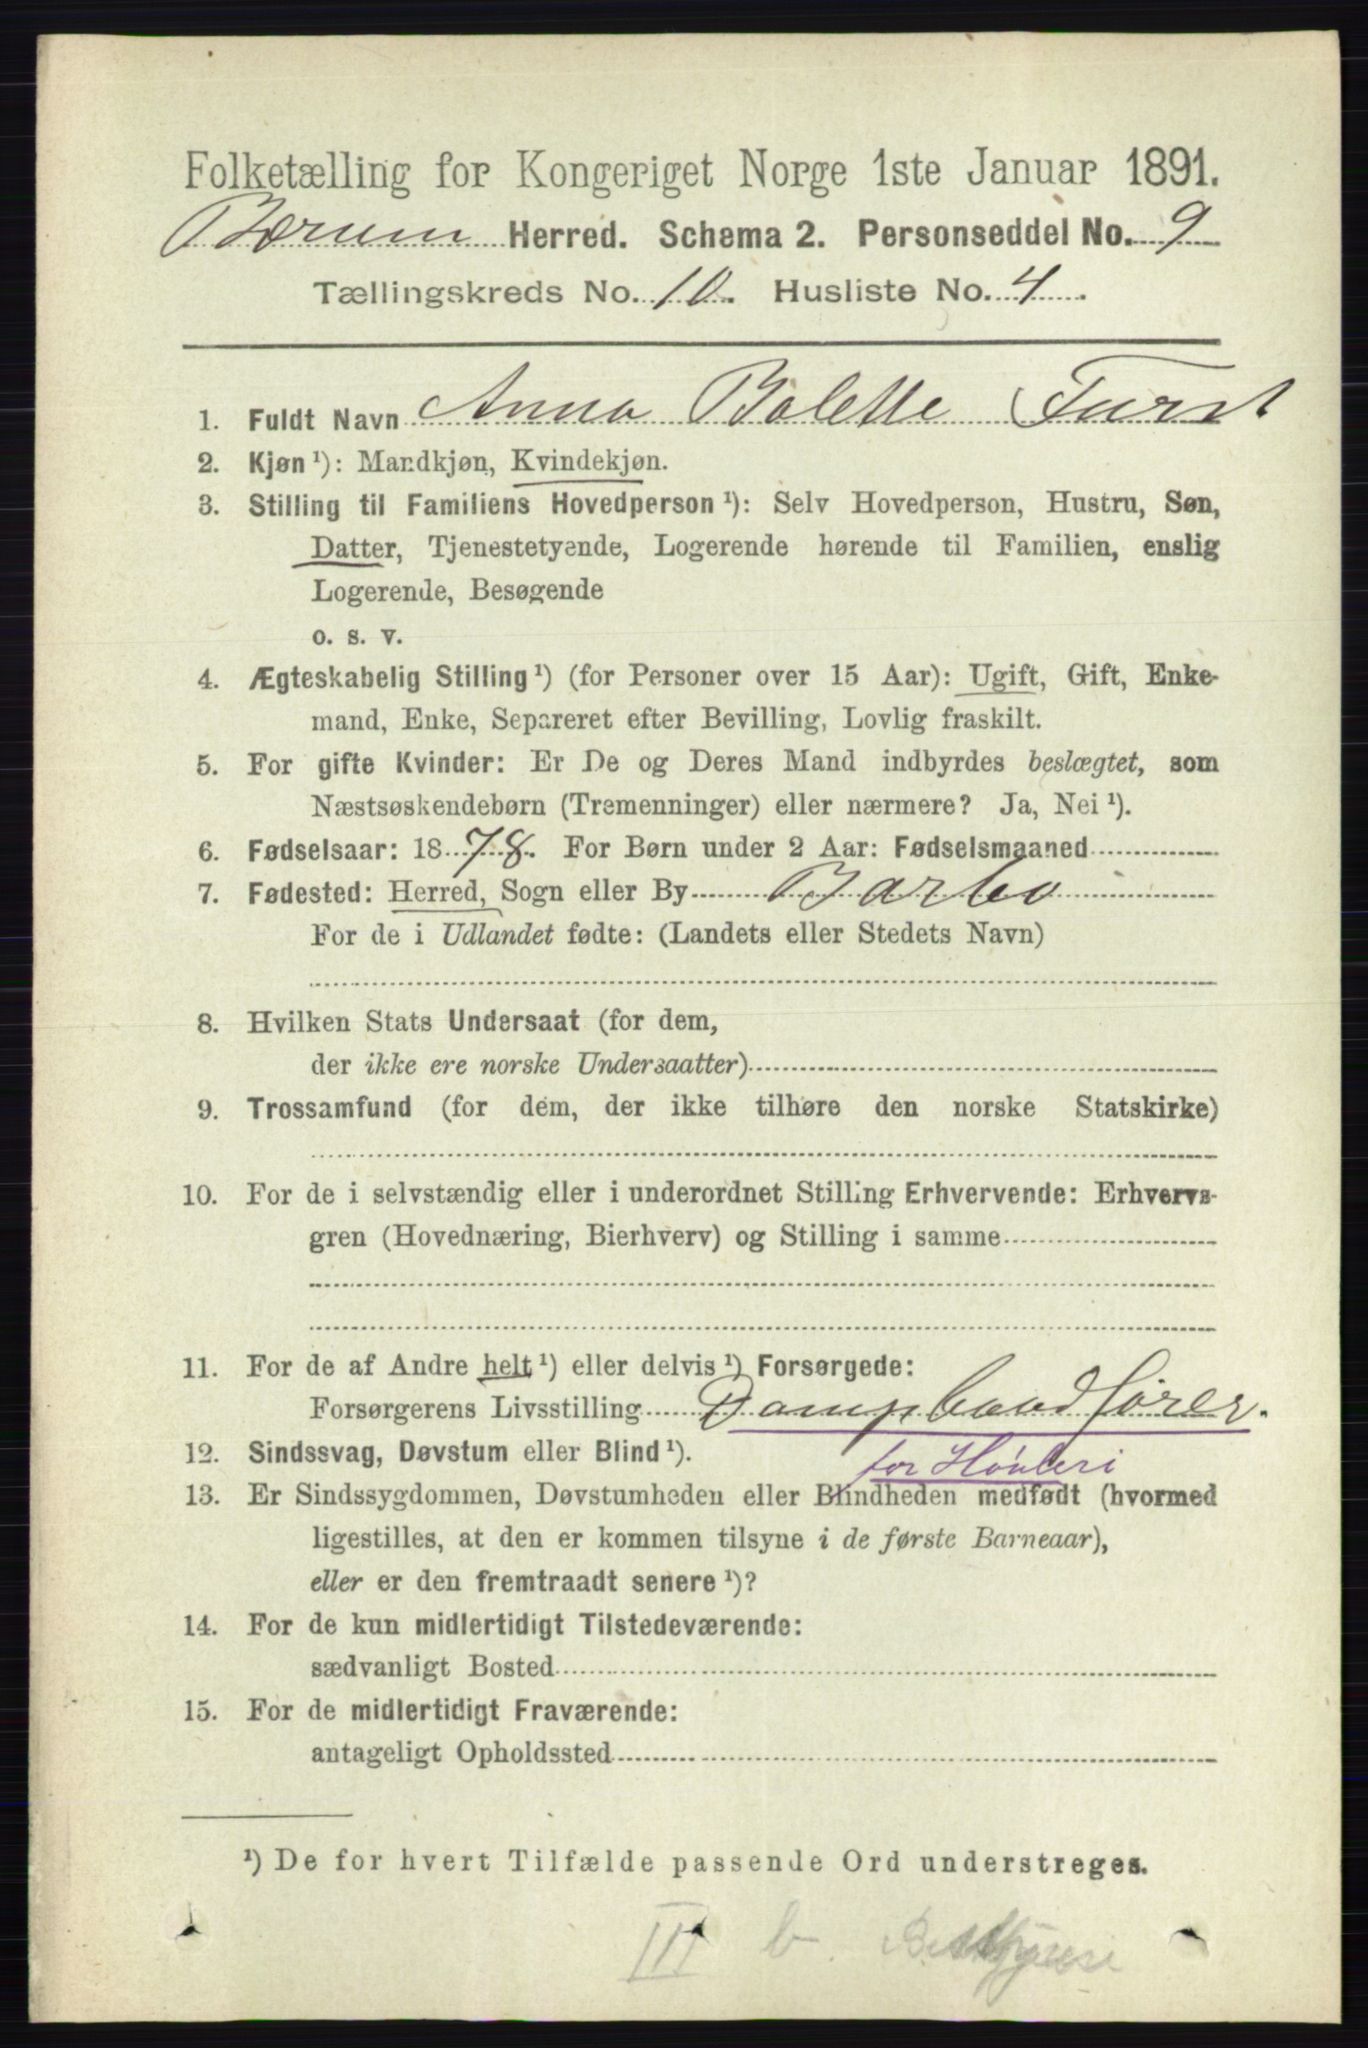 Folketælling for Kongeriget Norge 1ste Januar 1891.
Bærum Herred. Schema 2. Personseddel No. 9
Tællingskreds No. 10. Husliste No. 4.
1. Fuldt Navn Anna Bolette Furst
2. Kjøn¹): Mandkjøn, Kvindekjøn.
3. Stilling til Familiens Hovedperson¹): Selv Hovedperson, Hustru, Søn,
Datter, Tjenestetyende, Logerende hørende til Familien, enslig
Logerende, Besøgende
o. s. v.
4. Ægteskabelig Stilling¹) (for Personer over 15 Aar): Ugift, Gift, Enke-
mand, Enke, Separeret efter Bevilling, Lovlig fraskilt.
5. For gifte Kvinder: Er De og Deres Mand indbyrdes beslægtet, som
Næstsøskendebørn (Tremenninger) eller nærmere? Ja, Nei¹).
6. Fødselsaar: 1878. For Børn under 2 Aar: Fødselsmaaned
7. Fødested: Herred, Sogn eller By Barbo
For de i Udlandet fødte: (Landets eller Stedets Navn)
8. Hvilken Stats Undersaat (for dem,
der ikke ere norske Undersaatter)
9. Trossamfund (for dem, der ikke tilhøre den norske Statskirke)
10. For de i selvstændig eller i underordnet Stilling Erhvervende: Erhvervs-
gren (Hovednæring, Bierhverv) og Stilling i samme
11. For de af Andre helt¹) eller delvis¹) Forsørgede:
Forsørgerens Livsstilling Dampbaadfører.
12. Sindssvag, Døvstum eller Blind¹).
for
13. Er Sindssygdommen, Døvstumheden eller Blindheden medfødt (hvormed
ligestilles, at den er kommen tilsyne i de første Barneaar),
eller er den fremtraadt senere¹)?
14. For de kun midlertidigt Tilstedeværende:
sædvanligt Bosted
15. For de midlertidigt Fraværende:
antageligt Opholdssted
¹) De for hvert Tilfælde passende Ord understreges.
III b.